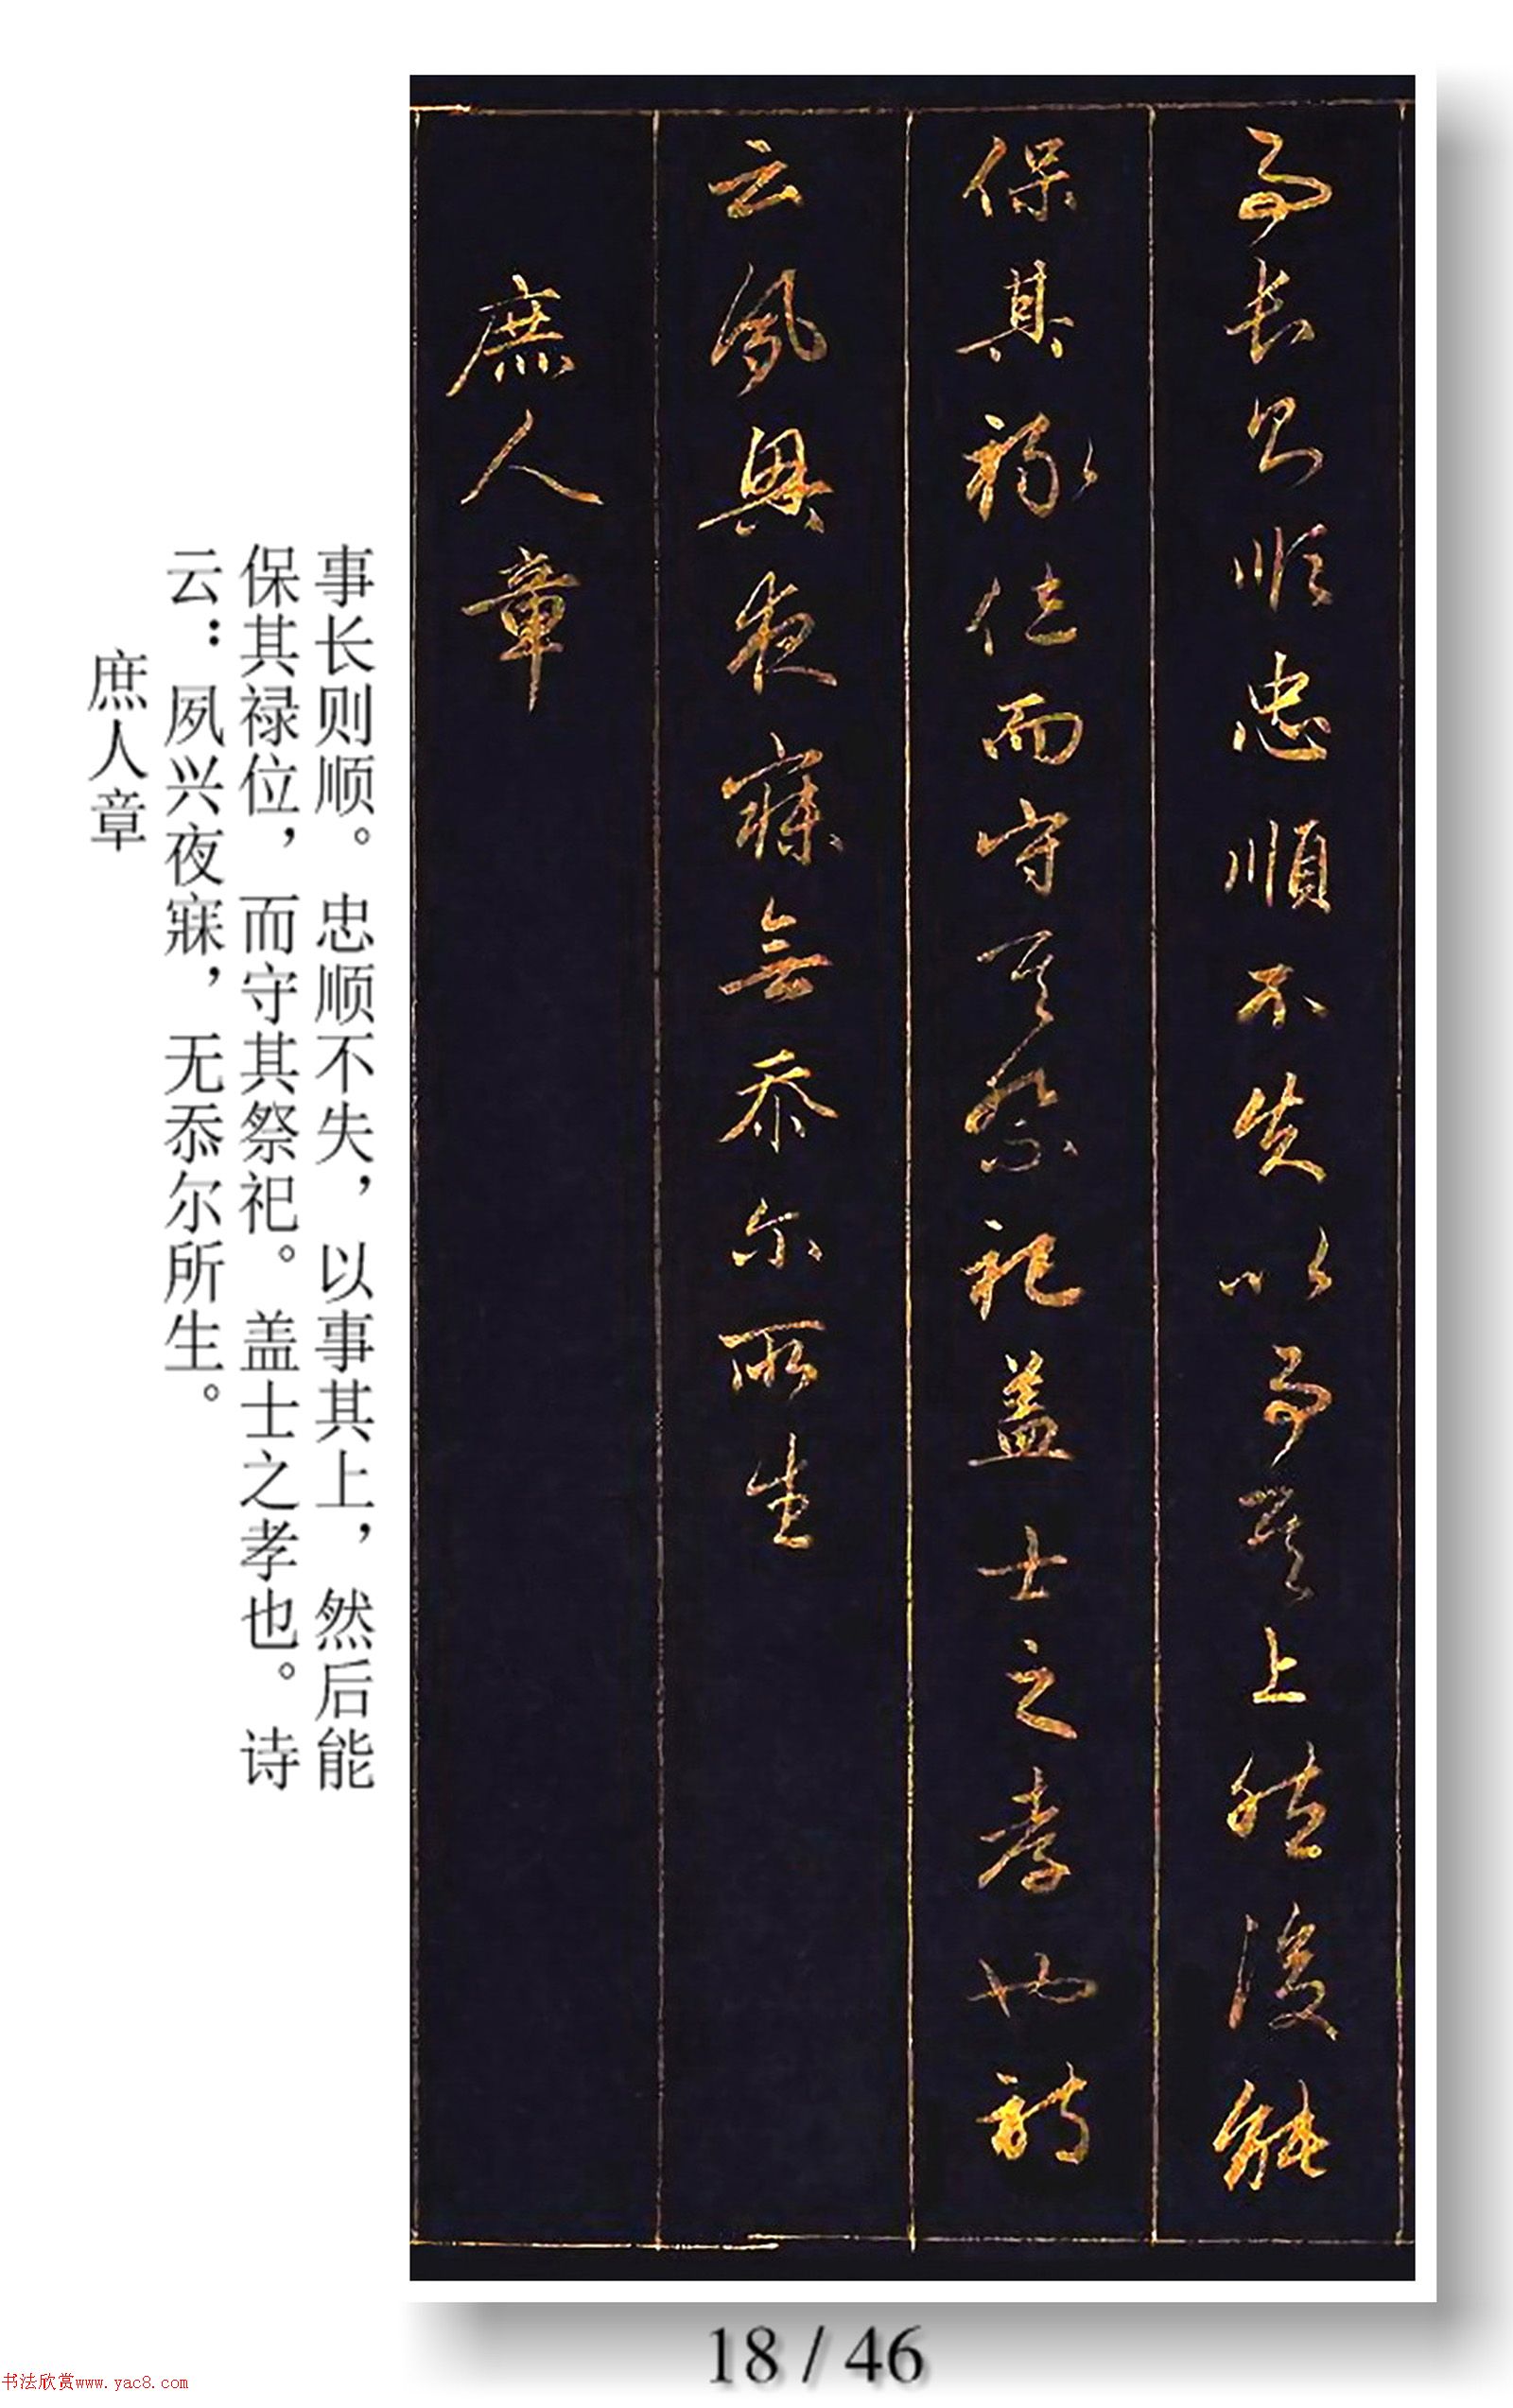 事長則順忠順不失以事其上然後能
保其祿位而守其祭祀蓋士之孝也詩
云夙興夜寐無忝尔所生
庶人章
事长则顺。忠顺不失，以事其上，然后能
保其禄位，而守其祭祀。盖士之孝也。诗
云：夙兴夜寐，无忝尔所生。
庶人章
18 / 46
书法欣赏www.yac8.com